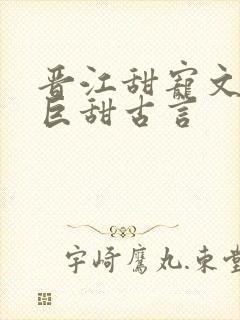 晋江甜寵文
巨甜古言
宇崎鷹丸.束